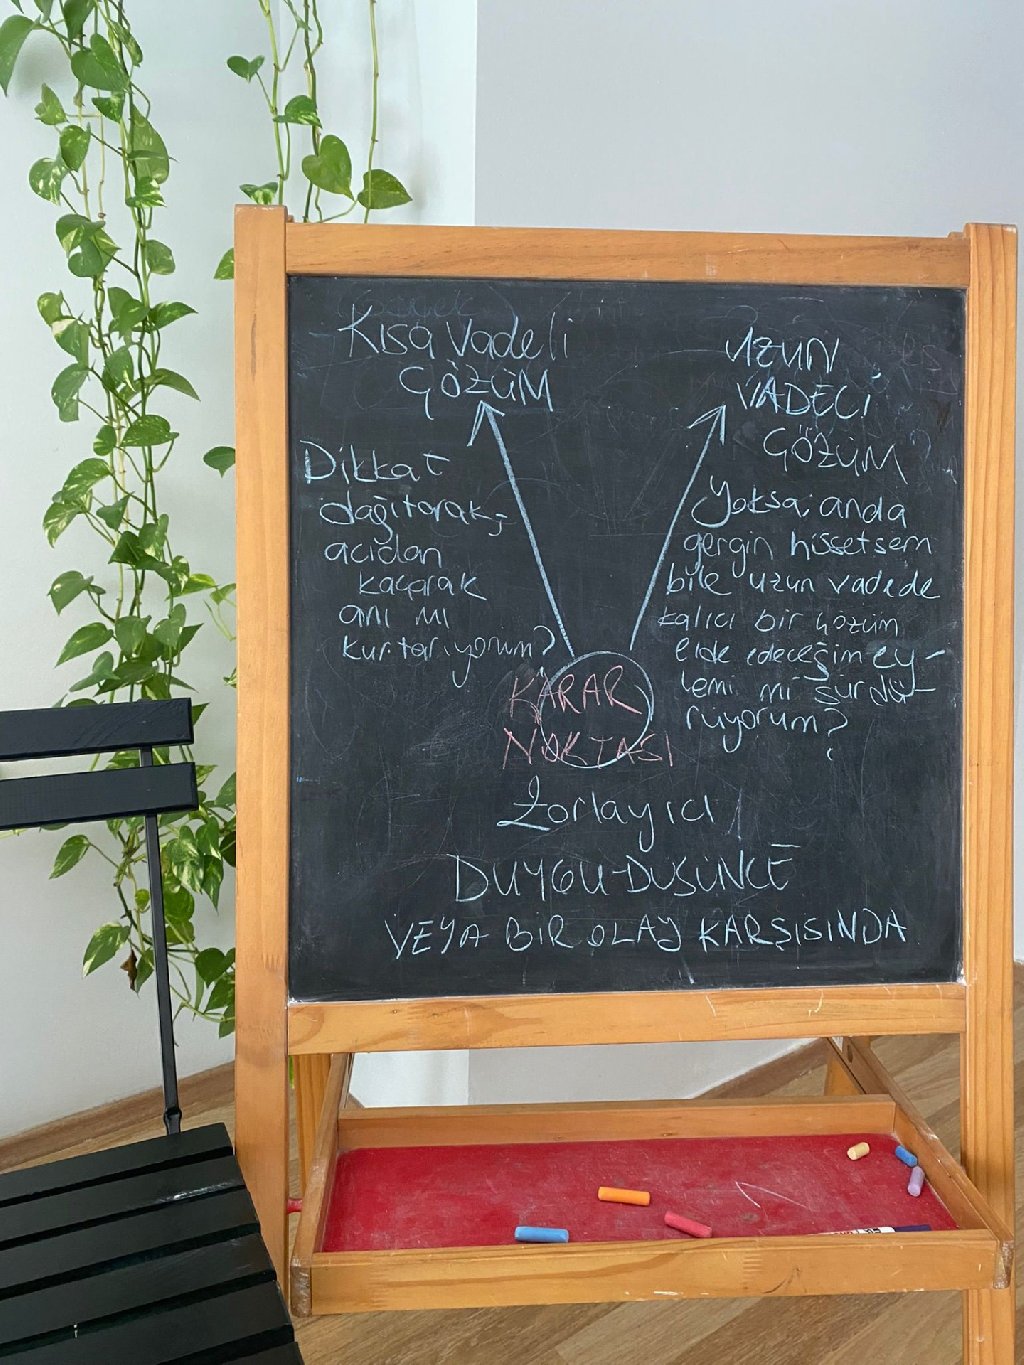 Kısa Vadeli
ÇÖZÜM
Dikkat
dağıtarak,
acıdan
kaçarak
anı mı
kurtarıyorum?
UZUN
VADECİ
ÇÖZÜM
Yoksa, anda
gergin hissetsem
bile uzun vadede
kalıcı bir çözüm
elde edeceğim ey-
lemi mi sürdü-
rüyorum?
KARAR
NOKTASI
Zorlayıcı
DUYGU-DÜŞÜNCE
VEYA BİR OLAY KARŞISINDA